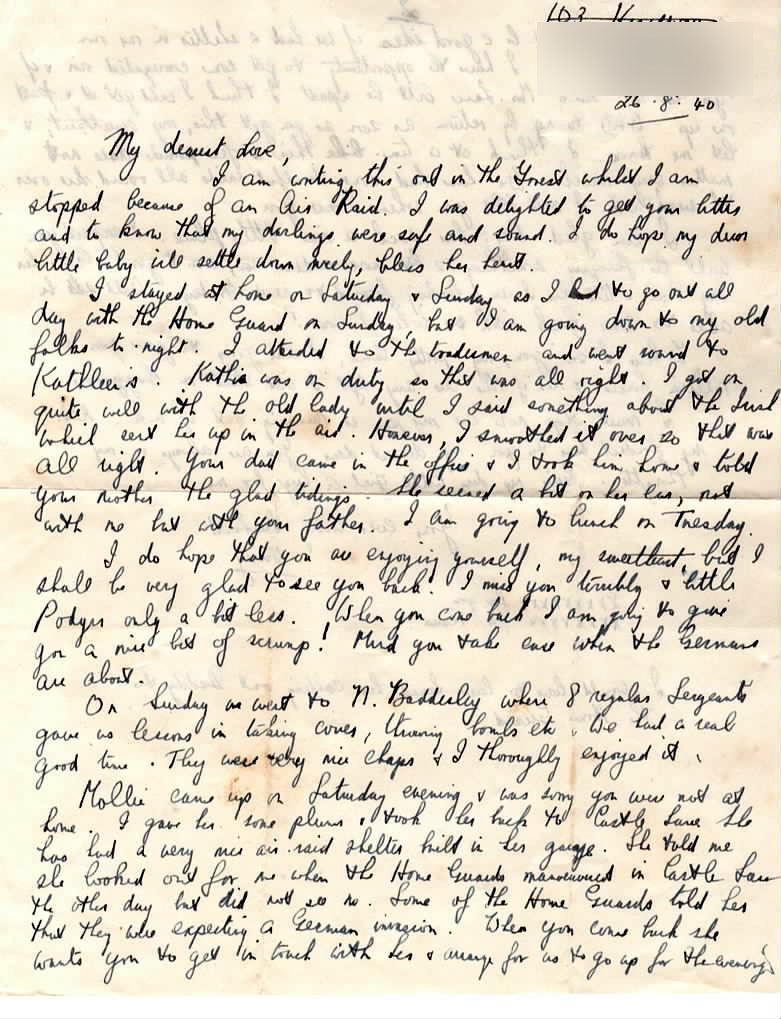 103
26.8.40
My dearest Love,
I am writing this out in the Forest whilst I am
stopped because of an Air Raid. I was delighted to get your letter
and to know that my darlings were safe and sound. I do hope my dear
little baby will settle down nicely, bless her heart.
I stayed at home on Saturday & Sunday as I had to go out all
day with the Home Guard on Sunday, but I am going down to my old
folks to-night. I attended to the tradesmen and went round to
Kathleen's. Kathie was on duty so that was all right. I got on
quite well with the old lady until I said something about the Irish
which sent her up in the air. However, I smoothed it over so that was
all right. Your dad came in the office & I took him home & told
your mother the glad tidings. She seemed a bit on her ear, not
with me but with your father. I am going to lunch on Tuesday.
I do hope that you are enjoying yourself, my sweetheart, but I
shall be very glad to see you back. I miss you terribly & little
only a bit less. When you come back I am going to give
you a nice bit of scrump! Mind you take care when the Germans
are about.
On Sunday we went to N. Baddesley where 8 regular Sergeants
gave us lessons in taking cover, throwing bombs etc. We had a real
good time. They were very nice chaps & I thoroughly enjoyed it.
Mollie came up on Saturday evening & was sorry you were not at
home. I gave her some plums & took her back to Castle Lane. She
has had a very nice air-raid shelter built in her garage. She told me
she looked out for me when the Home Guards manoeuvred in Castle Lane
the other day but did not see me. Some of the Home Guards told her
that they were expecting a German invasion. When you come back she
wants you to get in touch with her & arrange for us to go up for the evening